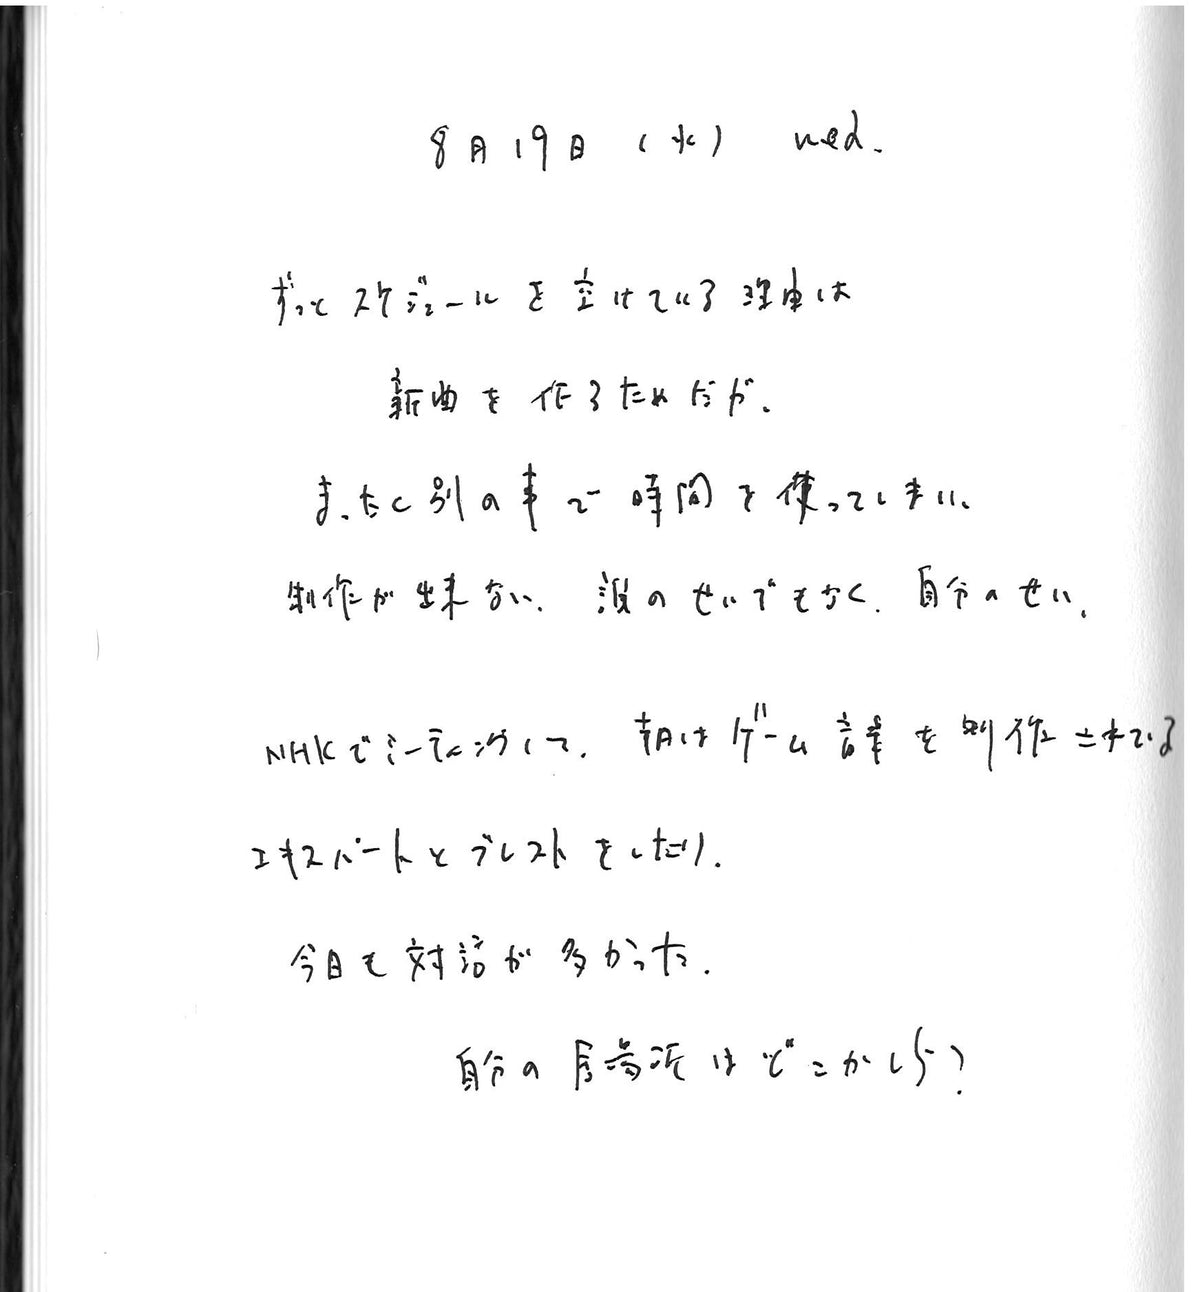 8月19日 (水) wed.
ずっとスケジュールを空けている理由は
新曲を作るためだが、
まったく別の事で時間を使ってしまい、
制作が出来ない、誰のせいでもなく、自分のせい、
NHKでミーティングして、朝はゲーム音楽を制作されている
エキスパートとブレストをしたり、
今日も対話が多かった、
自分の居場所はどこかしら?